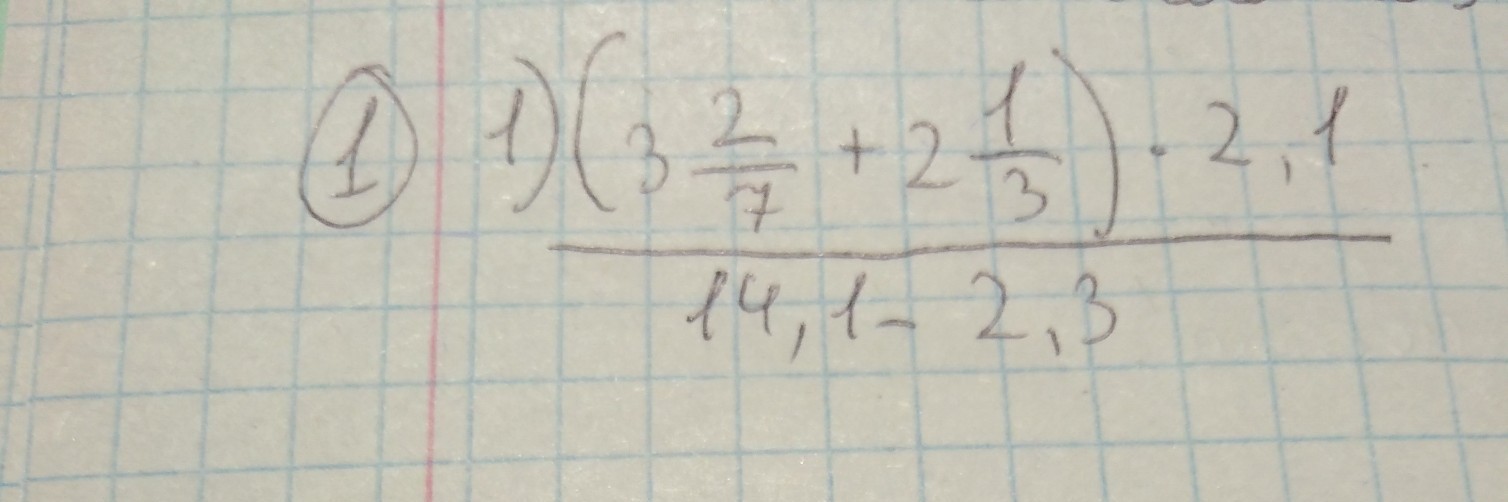 ① 1) (3 2/7 + 2 1/3) · 2,1
14,1 - 2,3